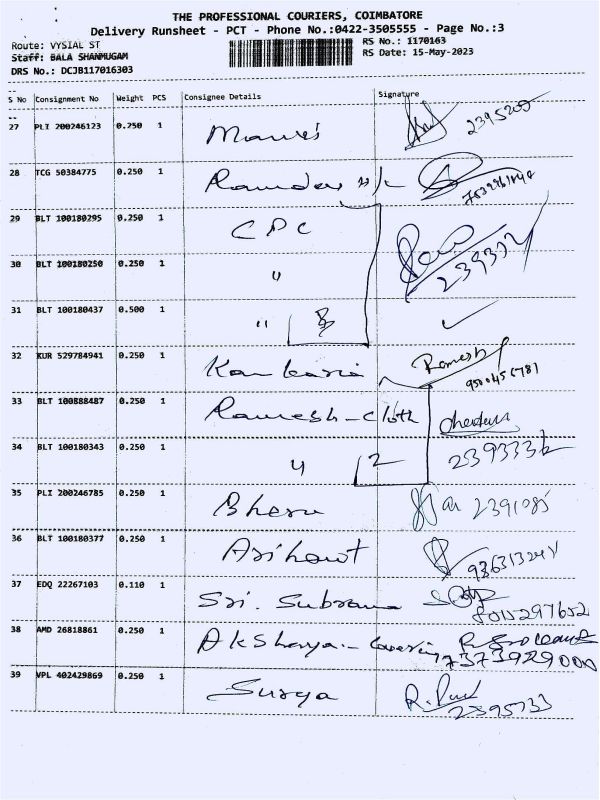 THE PROFESSIONAL COURIERS, COIMBATORE
Delivery Runsheet - PCT - Phone No.:0422-3505555 - Page No.:3
Route: VYSIAL ST
RS No.: 1170163
Staff: BALA SHANMUGAM
RS Date: 15-May-2023
DRS No.: DCJB117016303
S No Consignment No Weight PCS Consignee Details Signature
27 PLI 200246123 0.250 1
28 TCG 50384775 0.250 1
29 BLT 100180295 0.250 1 CPC
30 BLT 100180250 0.250 1 "
239312
31 BLT 100180437 0.500 1 "
32 KUR 529784941 0.250 1 Ramesh
33 BLT 100888487 0.250 1 Ramesh-cloth
34 BLT 100180343 0.250 1 " 2
35 PLI 200246785 0.250 1 2391085
36 BLT 100180377 0.250 1 Arihant
37 EDQ 22267103 0.110 1 Sri. Subrama
8015297652
38 AMD 26818861 0.250 1 Akshaya-covering
7373929000
39 VPL 402429869 0.250 1 Surya
2395733